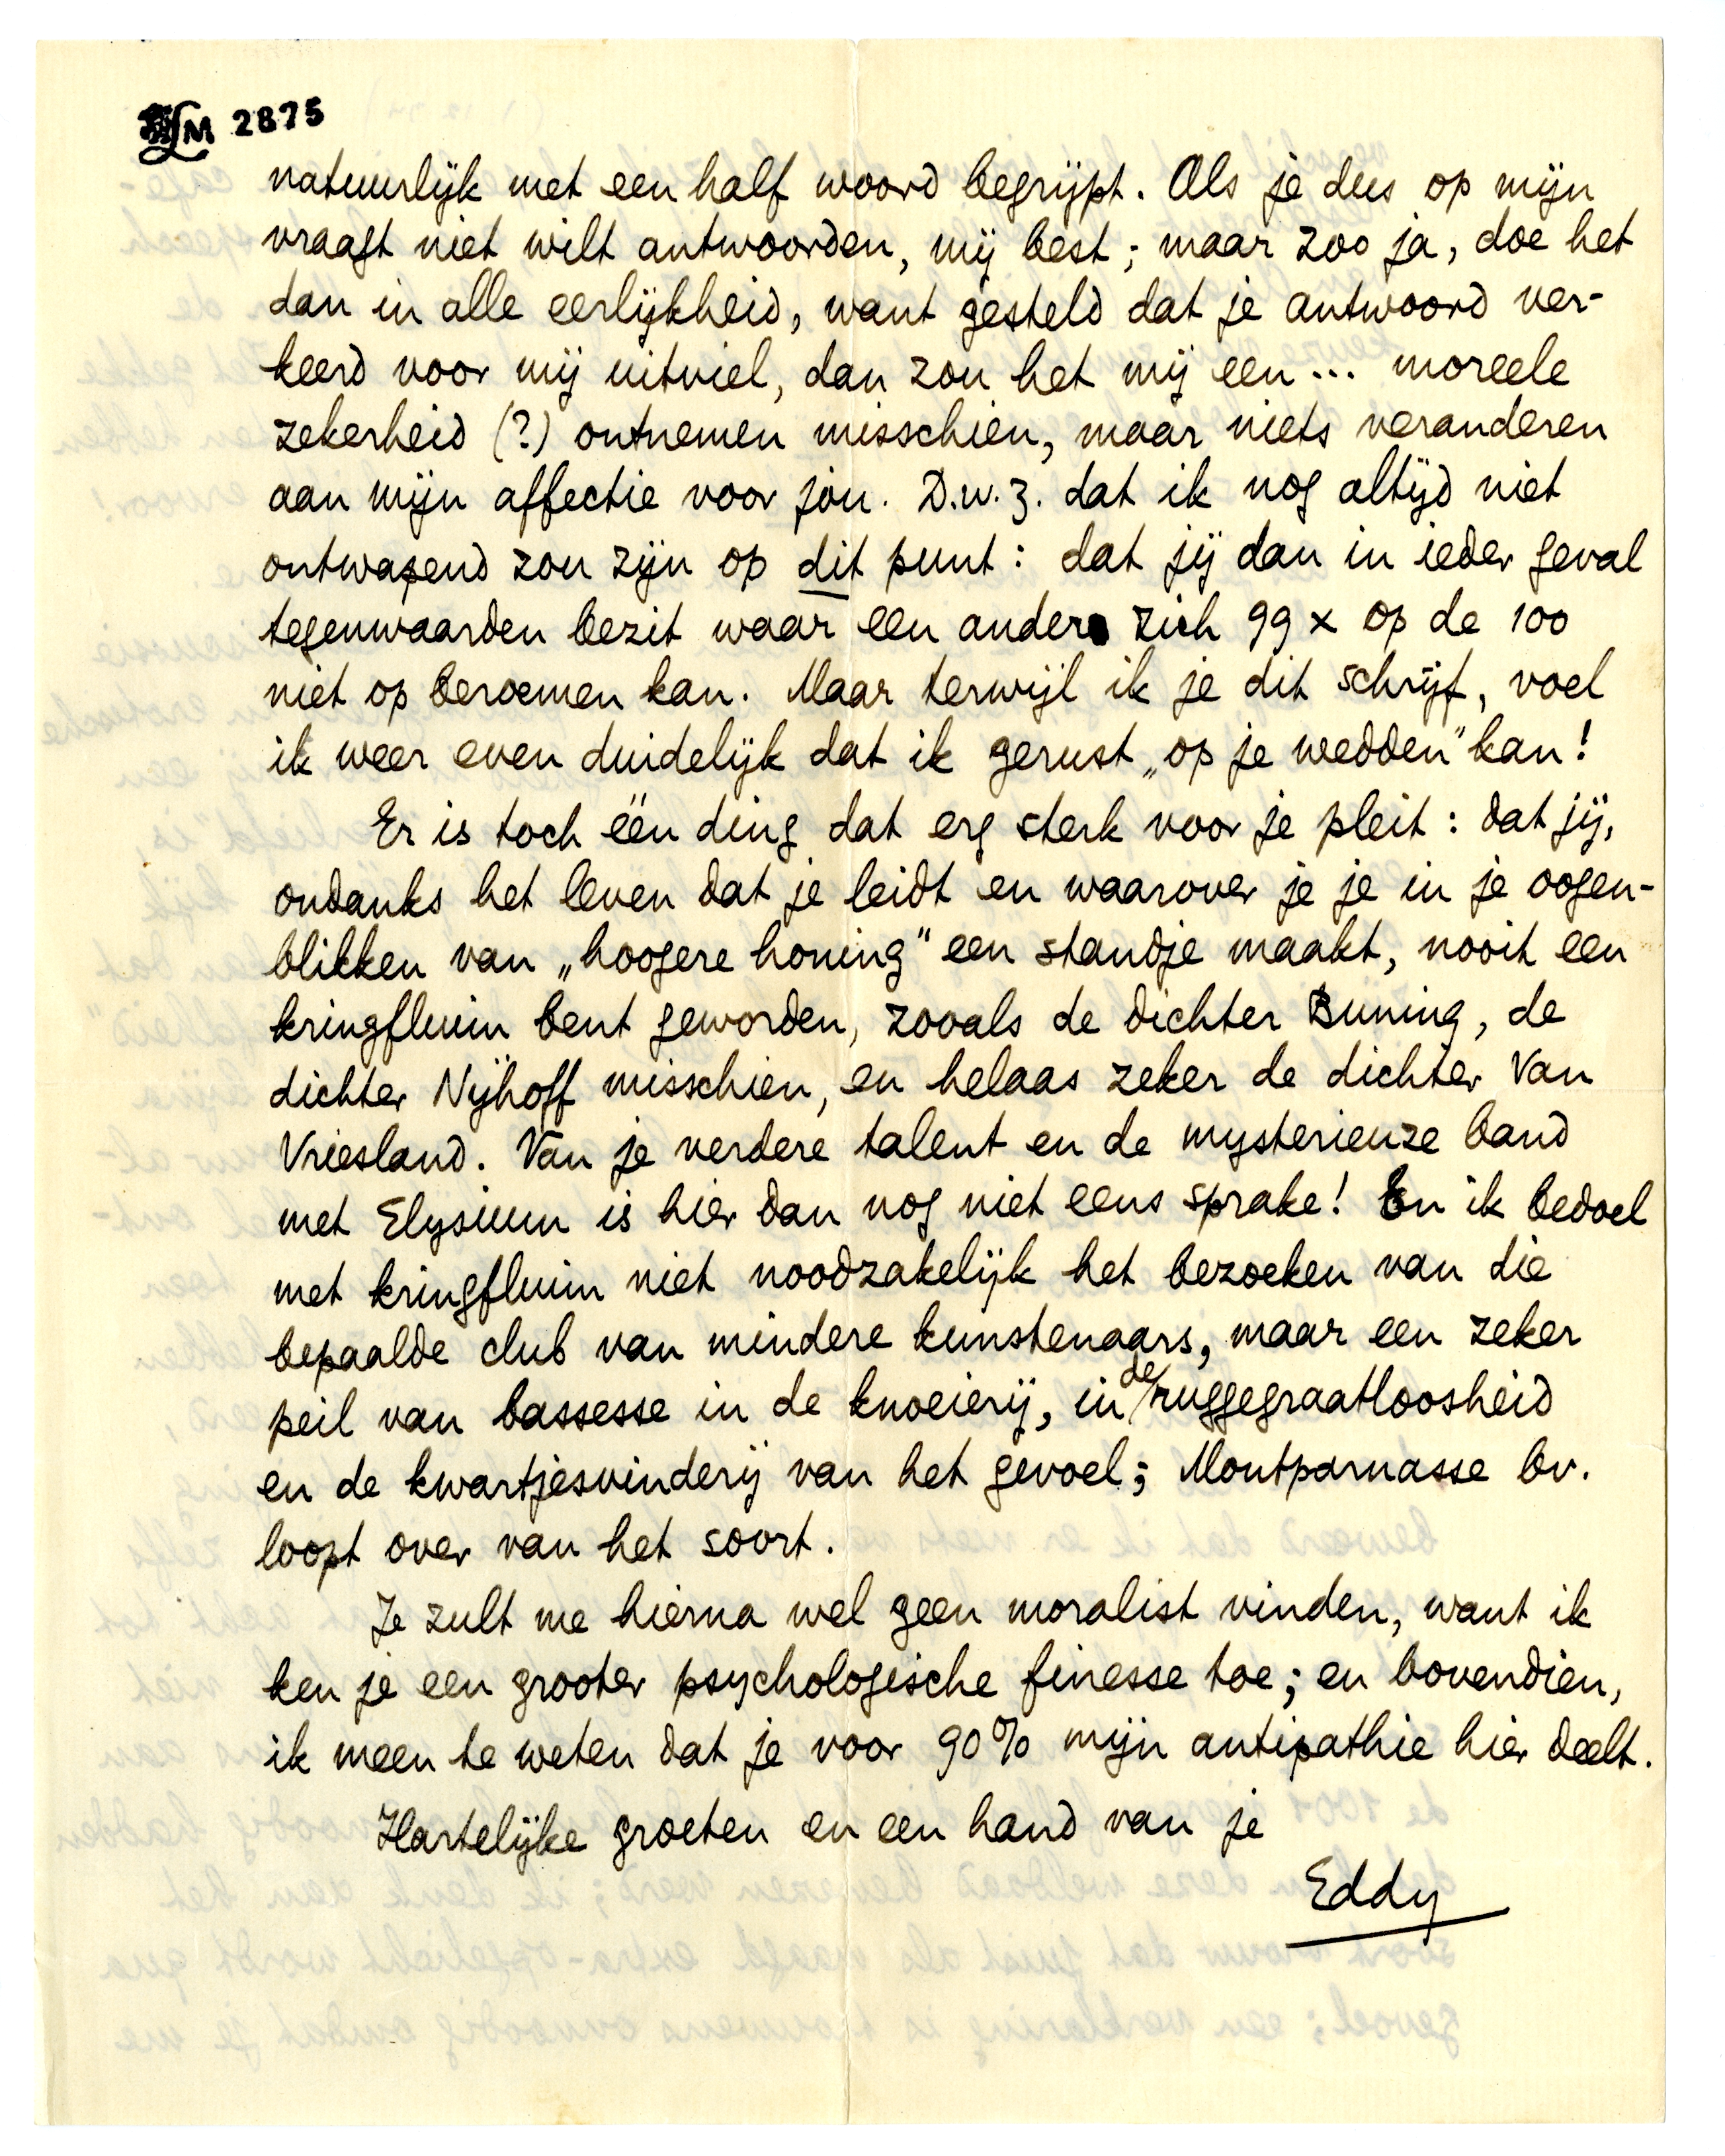 LM 2875
natuurlijk met een half woord begrijpt. Als je dus op mijn
vraag niet wilt antwoorden, mij best; maar zoo ja, doe het
dan in alle eerlijkheid, want gesteld dat je antwoord ver-
keerd voor mij uitviel, dan zou het mij een... moreele
zekerheid (?) ontnemen misschien, maar niets veranderen
aan mijn affectie voor jou. D.w.z. dat ik nog altijd niet
ontwapend zou zijn op dit punt: dat jij dan in ieder geval
tegenwaarden bezit waar een ander zich 99 x op de 100
niet op beroemen kan. Maar terwijl ik je dit schrijf, voel
ik weer even duidelijk dat ik gerust „op je wedden" kan!
Er is toch één ding dat erg sterk voor je pleit: dat jij,
ondanks het leven dat je leidt en waarover je je in je oogen-
blikken van „hoogere honing" een standje maakt, nooit een
kringfluim bent geworden, zooals de dichter Buning, de
dichter Nijhoff misschien, en helaas zeker de dichter Van
Vriesland. Van je verdere talent en de mysterieuze band
met Elysium is hier dan nog niet eens sprake! En ik bedoel
met kringfluim niet noodzakelijk het bezoeken van die
bepaalde club van mindere kunstenaars, maar een zeker
peil van bassesse in de knoeierij, in de ruggegraatloosheid
en de kwartjesvinderij van het gevoel; Montparnasse bv.
loopt over van het soort.
Je zult me hierna wel geen moralist vinden, want ik
ken je een grooter psychologische finesse toe; en bovendien,
ik meen te weten dat je voor 90% mijn antipathie hier deelt.
Hartelijke groeten en een hand van je
Eddy